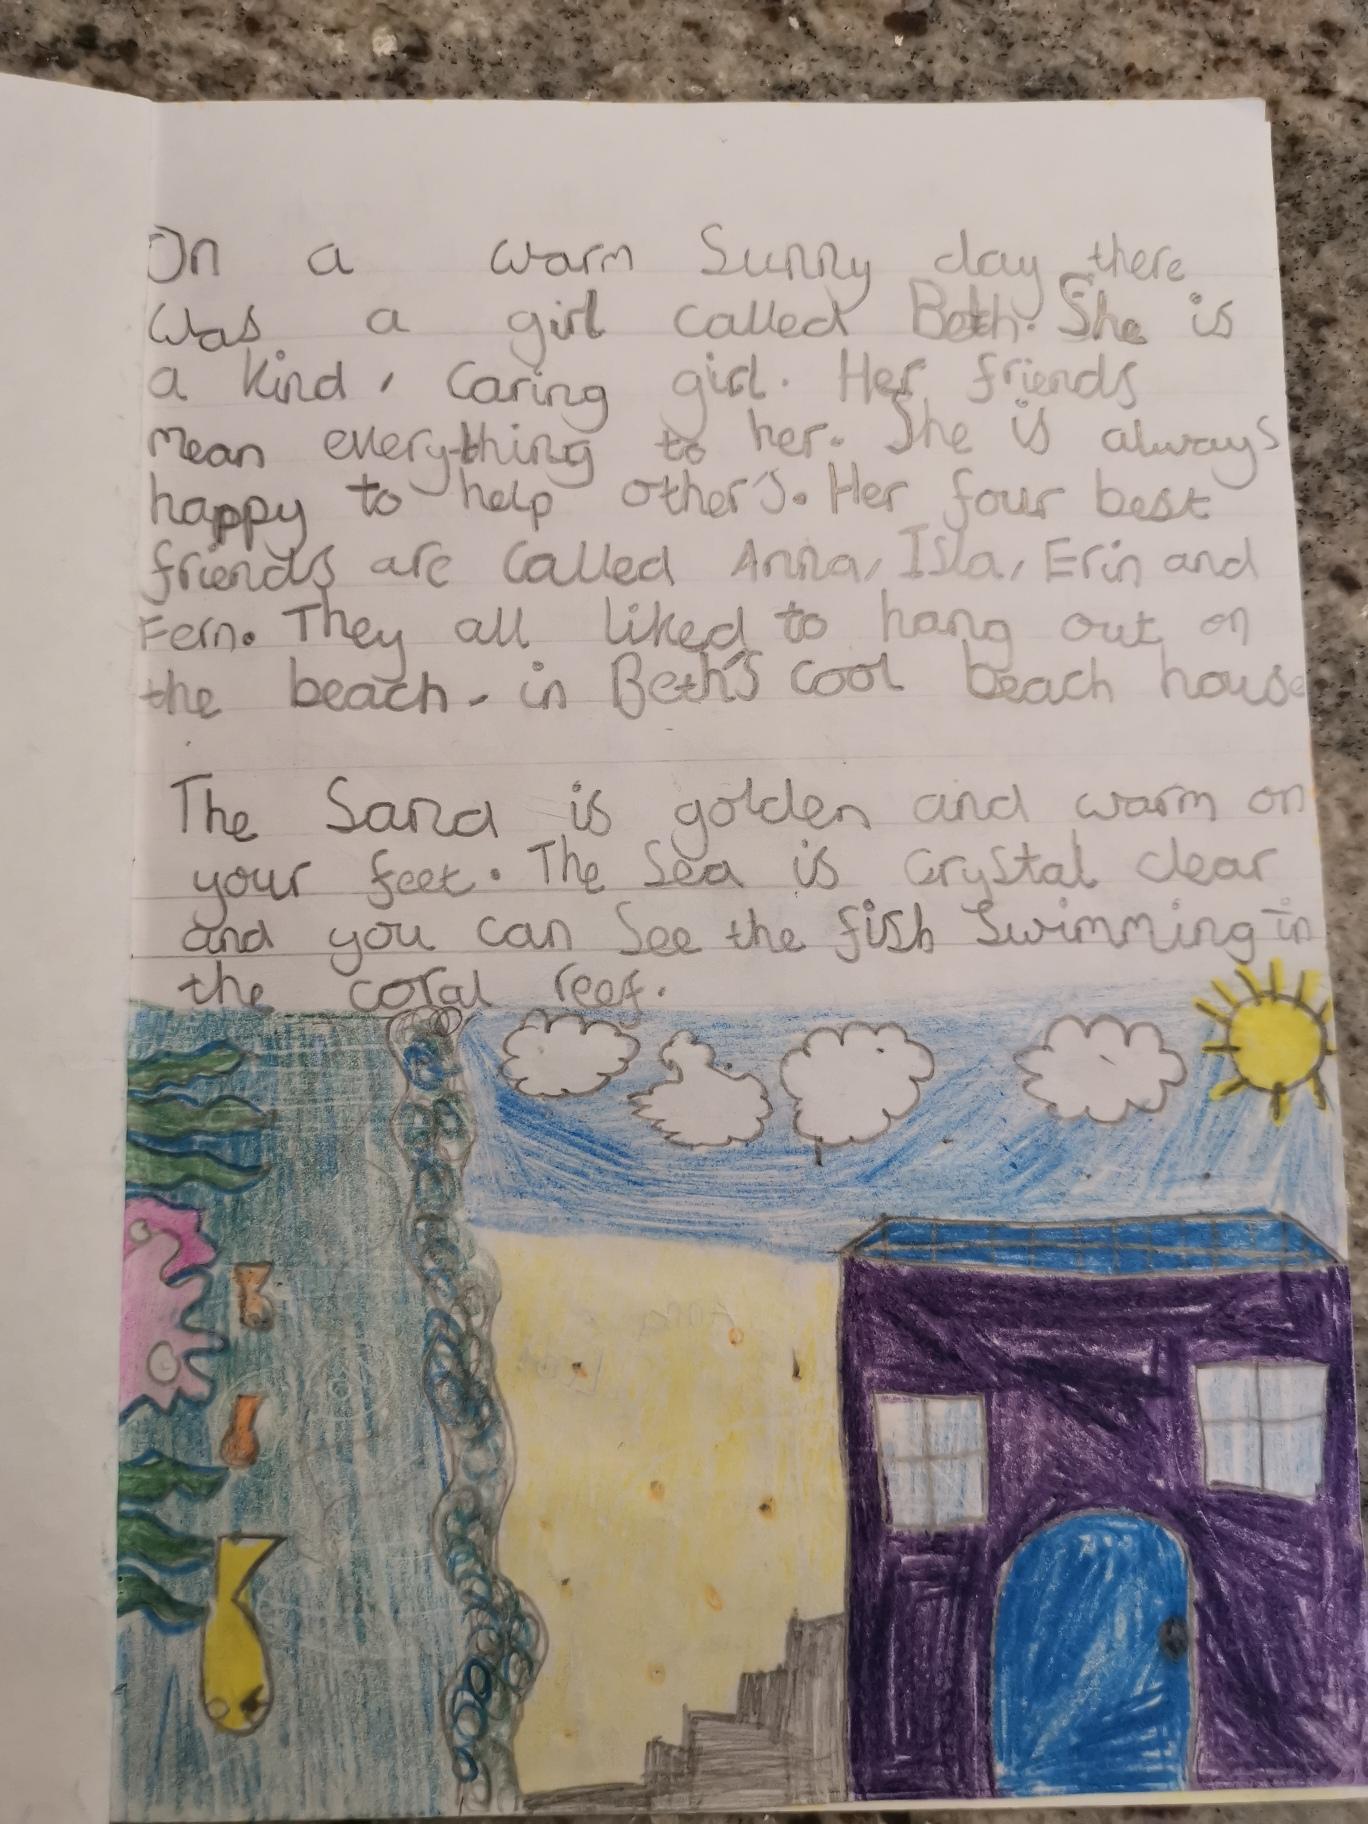 On a warm Sunny day there
was a girl called Beth. She is
a kind, caring girl. Her friends
mean everything to her. She is always
happy to help other's. Her four best
friends are called Anna, Isla, Erin and
Fern. They all liked to hang out on
the beach, in Beth's cool beach house
The Sand is golden and warm on
your feet. The Sea is crystal clear
and you can see the fish swimming in
the coral reef.